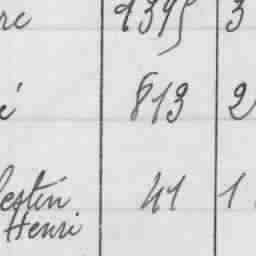 re 1395 3
é 813 2
lestin 41 1
Henri